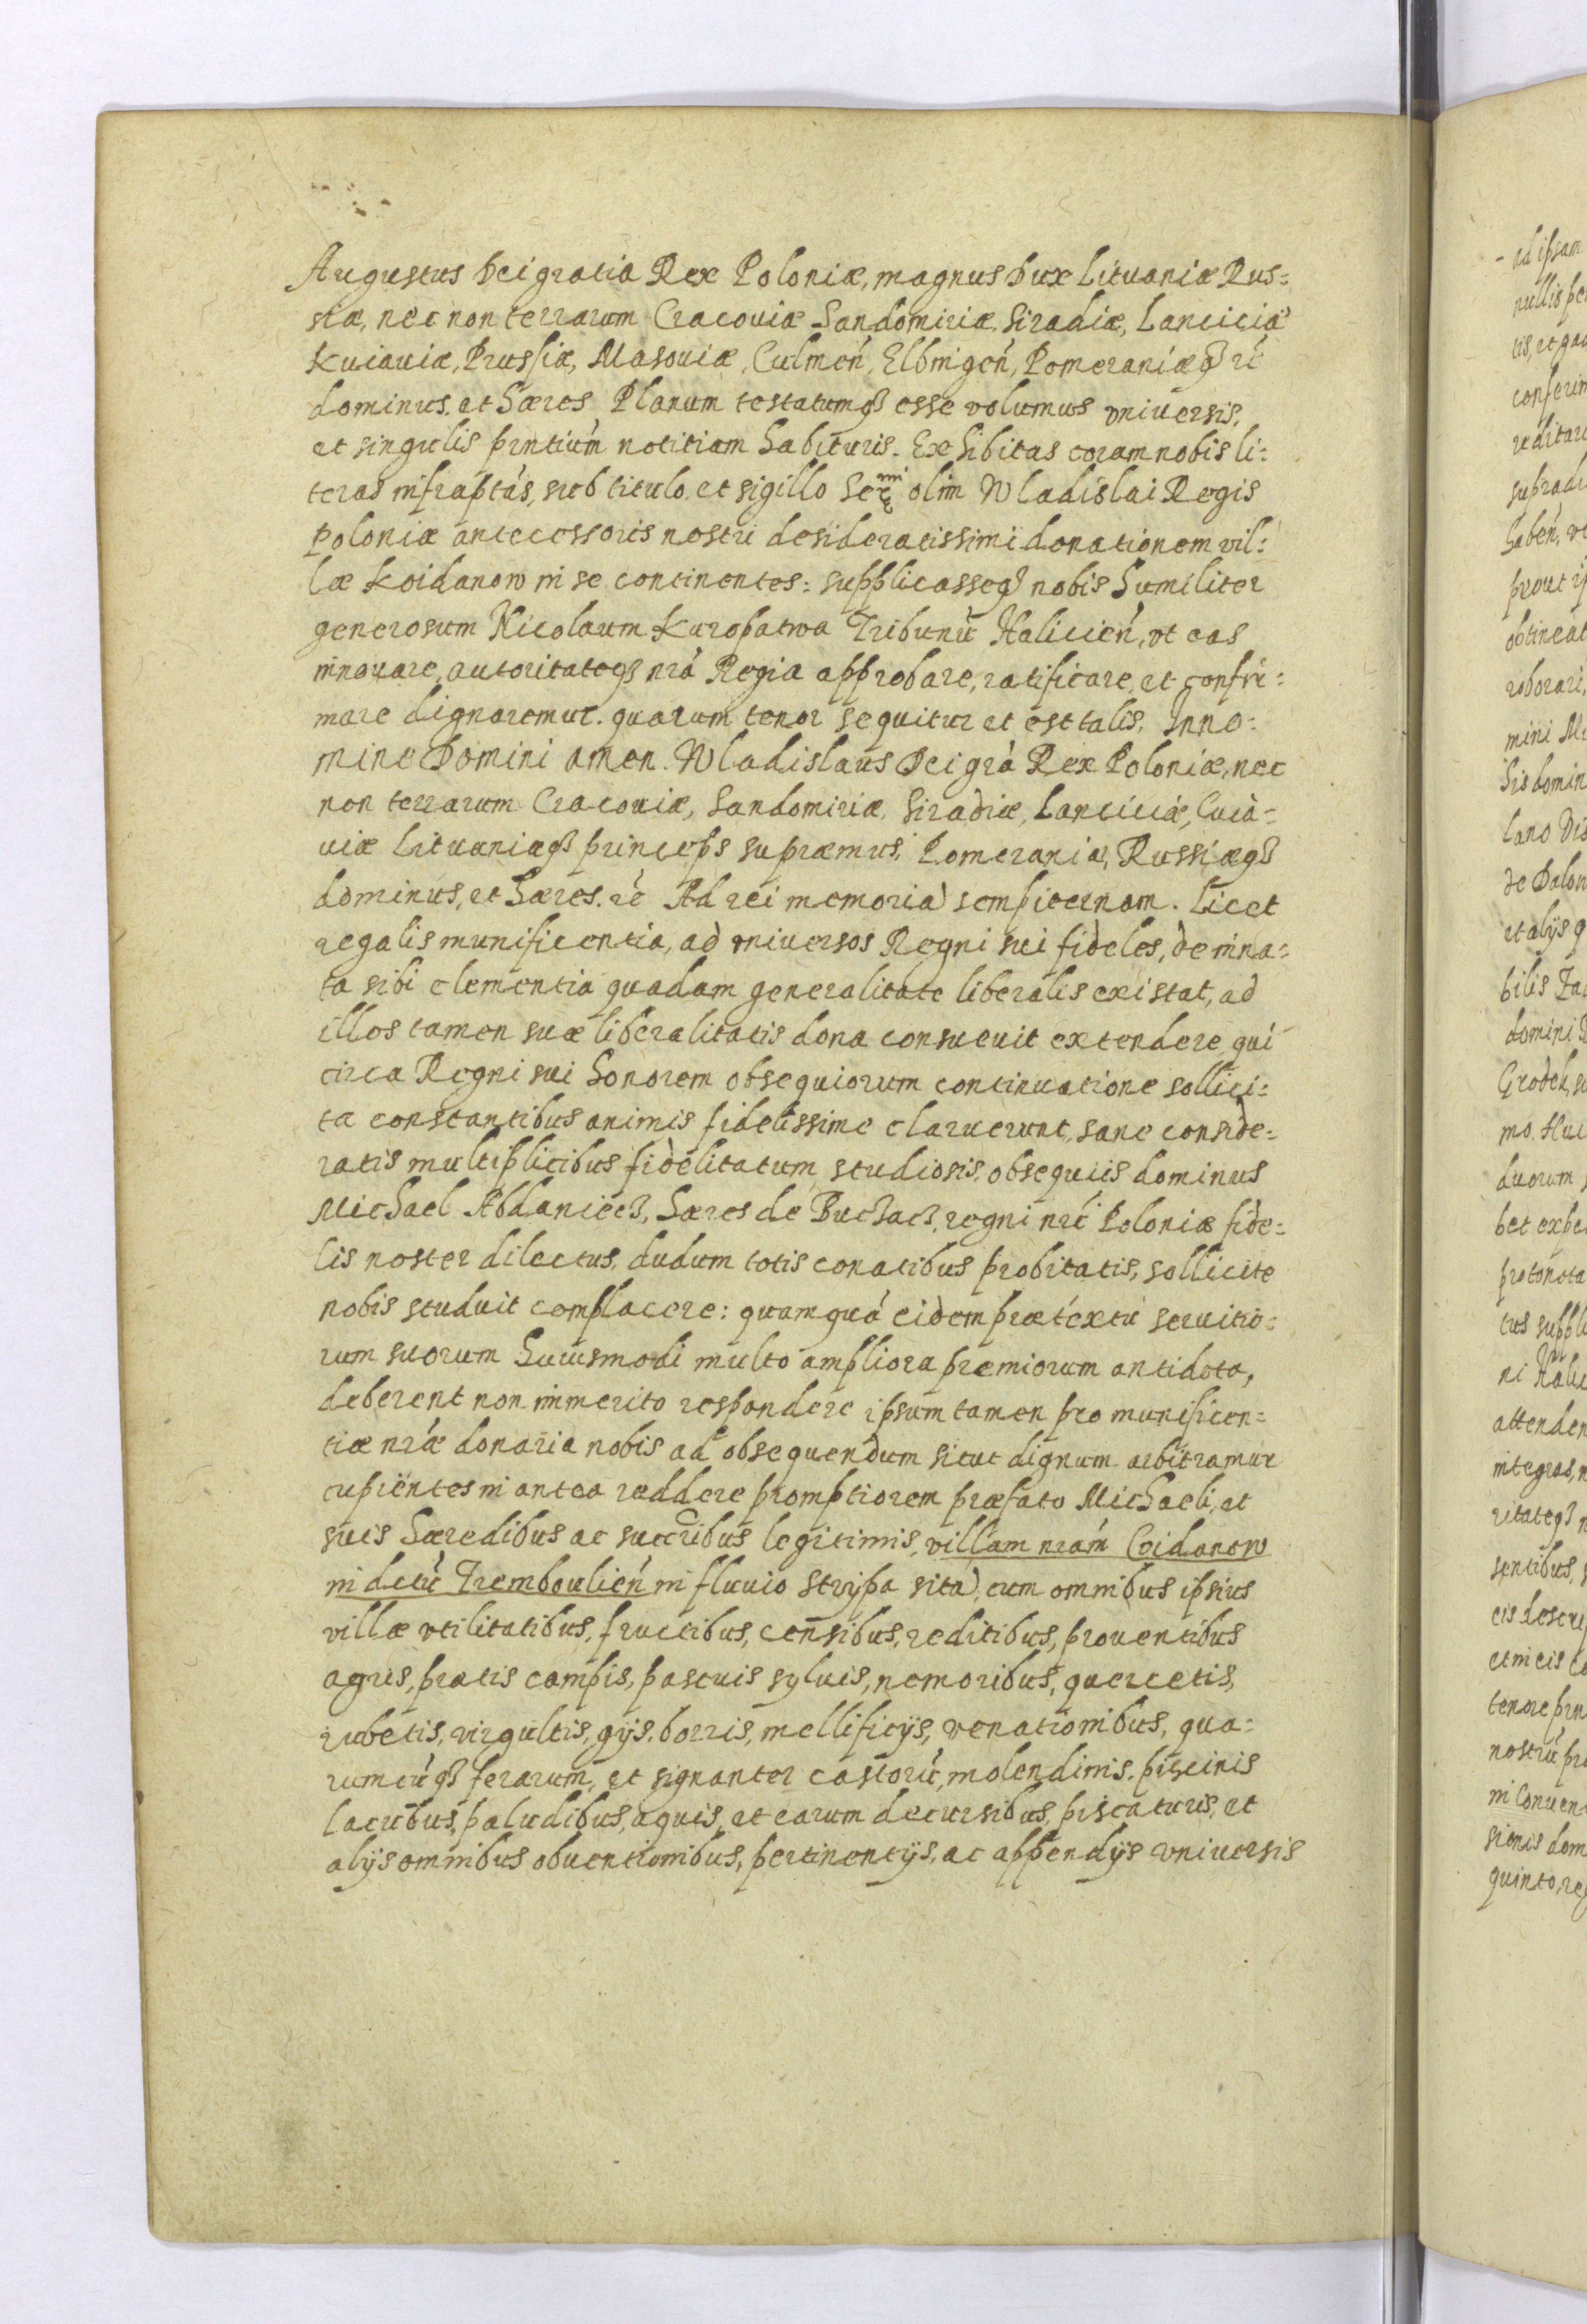 Augustus Dei gratia Rex Poloniæ, magnus Dux Lituaniæ Rus=
siæ, nec non terrarum Cracouiæ Sandomiriæ, Siradiæ, Lanciciæ
Kuiauiæ, Prussiæ, Masouiæ, Culmeń, Elbingeń, Pomeraniæq3 rć
dominus, et hæres Planum testatumq3 esse volumus vniuersis,
et singulis pr̃ntium notitiam habituris. Exhibitas coram nobis li=
teras infrap̃tas, sub titulo et sigillo Ser mi olim Wladislai Regis
Poloniæ antecessoris nostri desideratissimi donationem vil=
læ Koidanow in se continentes: supplicasseq3 nobis humiliter
generosum Nicolaum Kuropatwa Tribunũ Halicień, vt eas
innouare, autoritateq3 nrã Regia approbare, ratificare, et confir=
mare dignaremur. quarum tenor sequitur et est talis. In no=
mine Domini amen. Wladislaus Dei grã Rex Poloniæ, nec
non terrarum Cracouiæ, Sandomiriæ, Siradiæ, Lanciciæ, Cuia=
uiæ Lituaniæq3 princeps supræmus, Pomeraniæ, Russiæq3
dominus, et hæres. rć Ad rei memoriã sempiternam. Licet
regalis munificentia, ad vniuersos Regni sui fideles, de inna=
ta sibi clementia quadam generalitate liberalis existat, ad
illos tamen suæ liberalitatis dona consueuit extendere qui
circa Regni sui honorem obsequiorum continuatione sollici=
ta constantibus animis fidelissime claruerunt, sane conside=
ratis multiplicibus fidelitatum studiosis, obsequiis dominus
Michael Abdaniecz, hæres de Buczacz, regni nrĩ Poloniæ fide=
lis noster dilectus, dudum totis conatibus probitatis, sollicite
nobis studuit complacere: quamquã eidem prætextu seruitio=
rum suorum huiusmodi multo ampliora premiorum antidota,
deberent non immerito respondere ipsum tamen pro munificen=
tiæ nræ donaria nobis ad obsequendum sicut dignum arbitramur
cupientes in antea reddere promptiorem præfato Michaeli, et
suis hæredibus ac succribus legitimis, villam nrãm Coidanow
in dctũ Tremboulień in fluuio Strypa sitã, cum omnibus ipsius
villæ vtilitatibus, fructibus, censibus, reditibus, prouentibus
agris, pratis campis, pascuis syluis, nemoribus, quercetis,
rubetis, virgultis, gijs, borris, mellificijs, venationibus, qua=
rumcũq3 ferarum, et signanter castorũ, molendinis, piscinis
lacubus, paludibus, aquis, et earum decursibus, piscaturis, et
alijs omnibus obuentionibus, pertinentijs, ac appendijs vniuersis